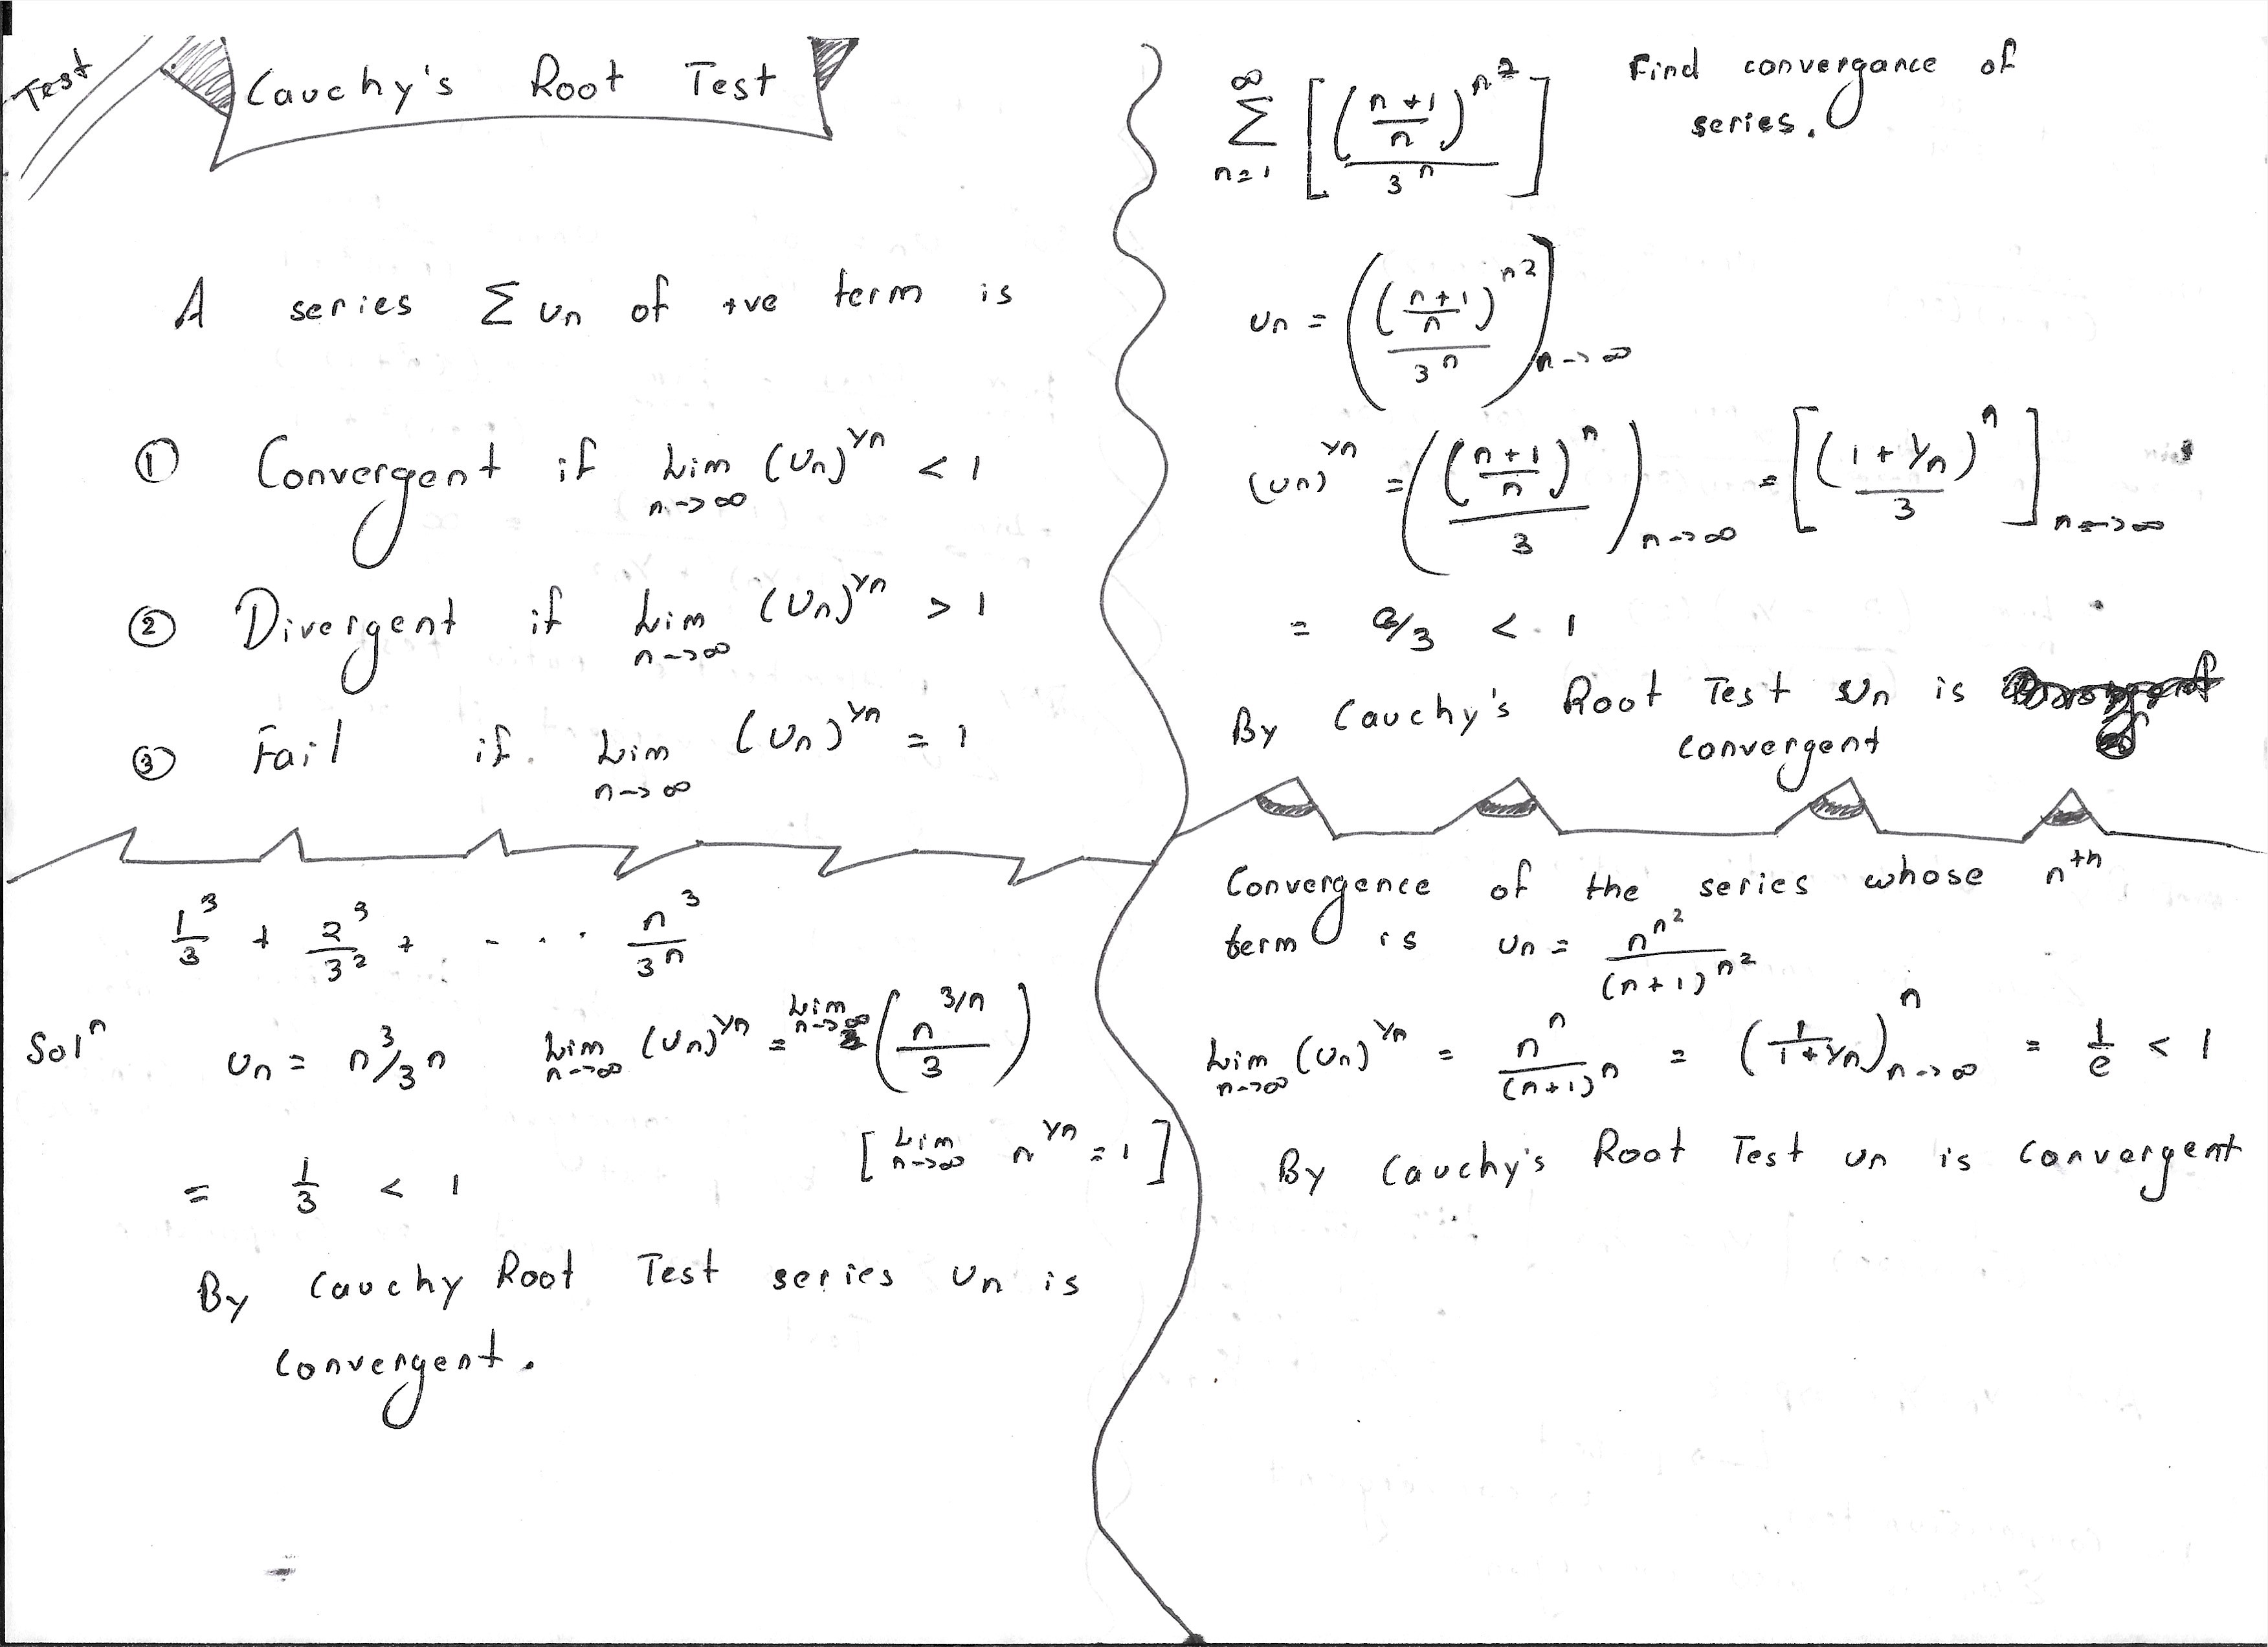 Test
Cauchy's Root Test
A series Σ un of +ve term is
① Convergent if Lim n->∞ (Un)^1/n < 1
② Divergent if Lim n->∞ (Un)^1/n > 1
③ Fail if. Lim n->∞ (Un)^1/n = 1
1^3/3 + 2^3/3^2 + - . . . n^3/3^n
Sol^n un = n^3/3^n Lim n->∞ (Un)^1/n = Lim n->∞ (n^3/n / 3)
= 1/3 < 1 [Lim n->∞ n^1/n = 1]
By Cauchy Root Test series Un is
Convergent.
∞ Σ n=1 [((n+1)/n)^n^2 / 3^n] Find convergance of
series.
Un = (((n+1)/n)^n^2 / 3^n) n->∞
(Un)^1/n = (((n+1)/n)^n / 3) n->∞ = [(1 + 1/n)^n / 3] n->∞
= e/3 < 1
By Cauchy's Root Test un is
convergent
Convergence of the series whose n^th
term is Un = n^n^2 / (n+1)^n^2
Lim n->∞ (Un)^1/n = n^n / (n+1)^n = (1/(1+1/n))^n n->∞ = 1/e < 1
By Cauchy's Root Test un is convergent